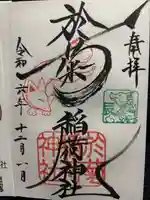 奉拝
於菊稲荷神社
令和六年十二月一日